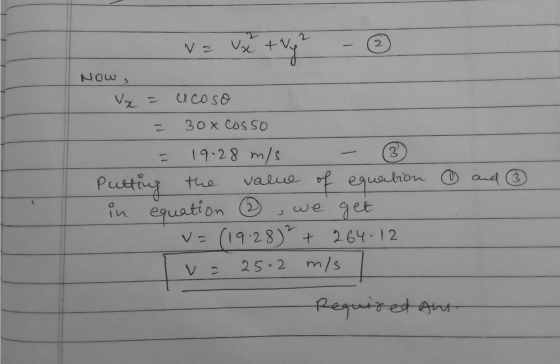 V = Vx² + Vy² — ②
Now,
Vx = u cosθ
= 30 × Cos50
= 19.28 m/s — ③
Putting the value of equation ① and ③
in equation ②, we get
V = (19.28)² + 264.12
V = 25.2 m/s
Required Ans.